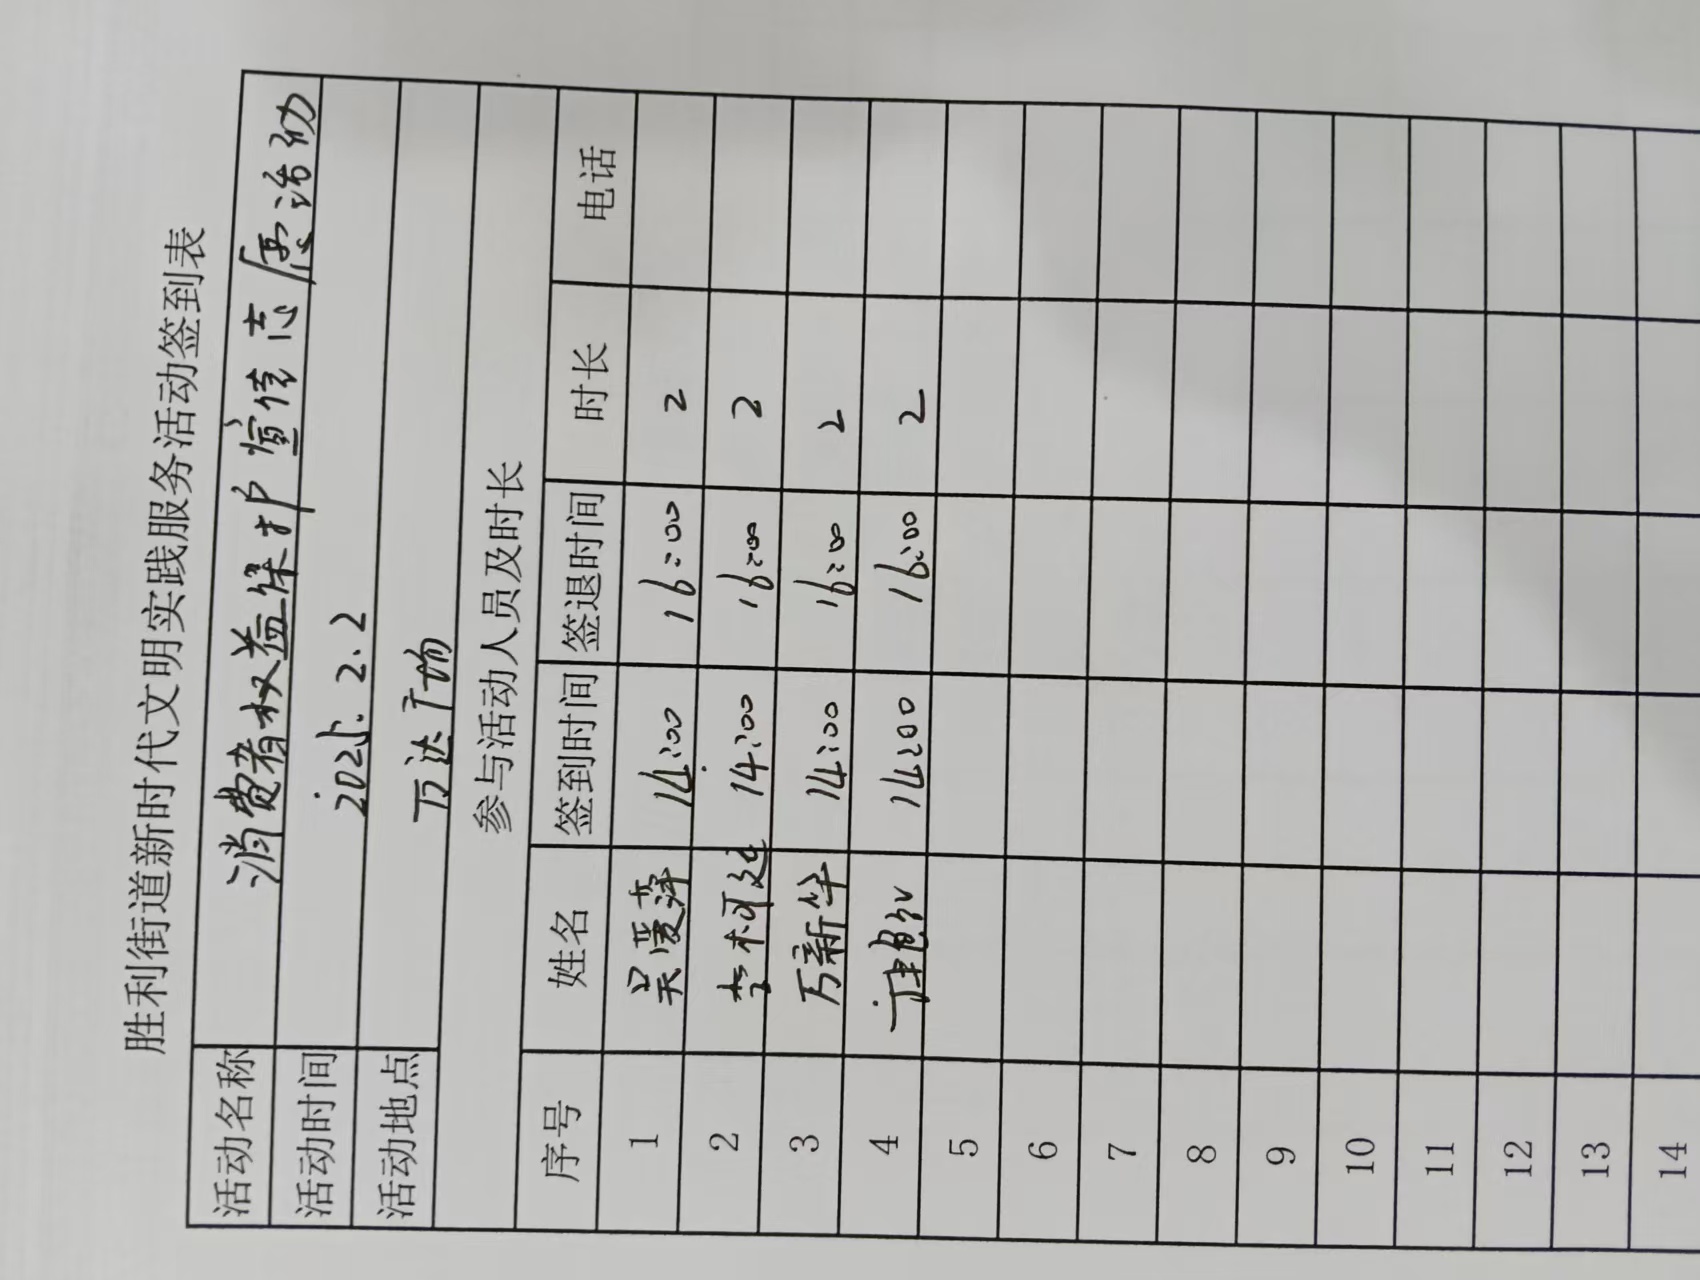 胜利街道新时代文明实践服务活动签到表
活动名称 消费者权益保护宣传志愿活动
活动时间 2025.2.2
活动地点 万达广场
参与活动人员及时长
序号 姓名 签到时间 签退时间 时长 电话
1 吴爱萍 14:00 16:00 2
2 李柯廷 14:00 16:00 2
3 万新华 14:00 16:00 2
4 14:00 16:00 2
5
6
7
8
9
10
11
12
13
14